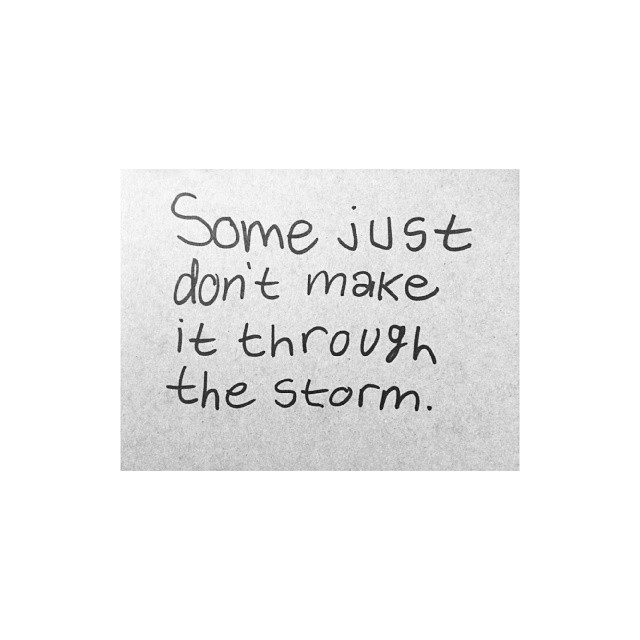 Some just
don't make
it through
the storm.